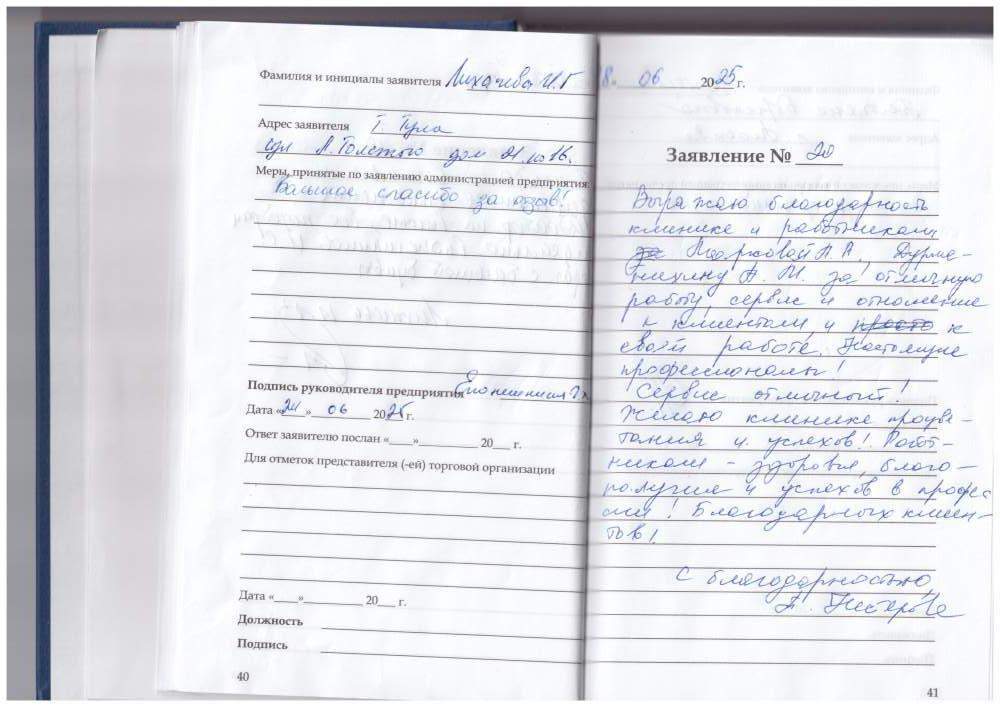 Фамилия и инициалы заявителя Лихачева И.Г
Адрес заявителя г. Тула
Л. Толстого дом 21.
Меры, принятые по заявлению администрацией предприятия:
Большое спасибо за отзыв!
Подпись руководителя предприятия
Дата «24» 06 2025 г.
Ответ заявителю послан «___»_________ 20__ г.
Для отметок представителя (-ей) торговой организации
Дата «___»_________ 20__ г.
Должность
Подпись
40
8. 06 2025 г.
Заявление № 20
Выражаю благодарность
клинике и работникам
Марковой А. А., Дурма-
нихину А. И. за отличную
работу, сервис и отношение
к клиентам, и просто к
своей работе. Настоящие
профессионалы!
Сервис отличный!
Желаю клинике процве-
тания и успехов! Работ-
никам - здоровья, благо-
получия и успехов в профес
сии! Благодарных клиен-
тов!
С благодарностью,
41